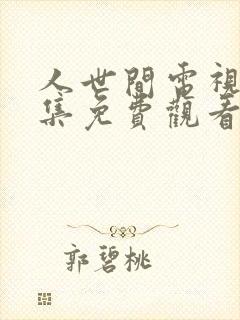 人世間電視
集免費觀看
郭碧桃